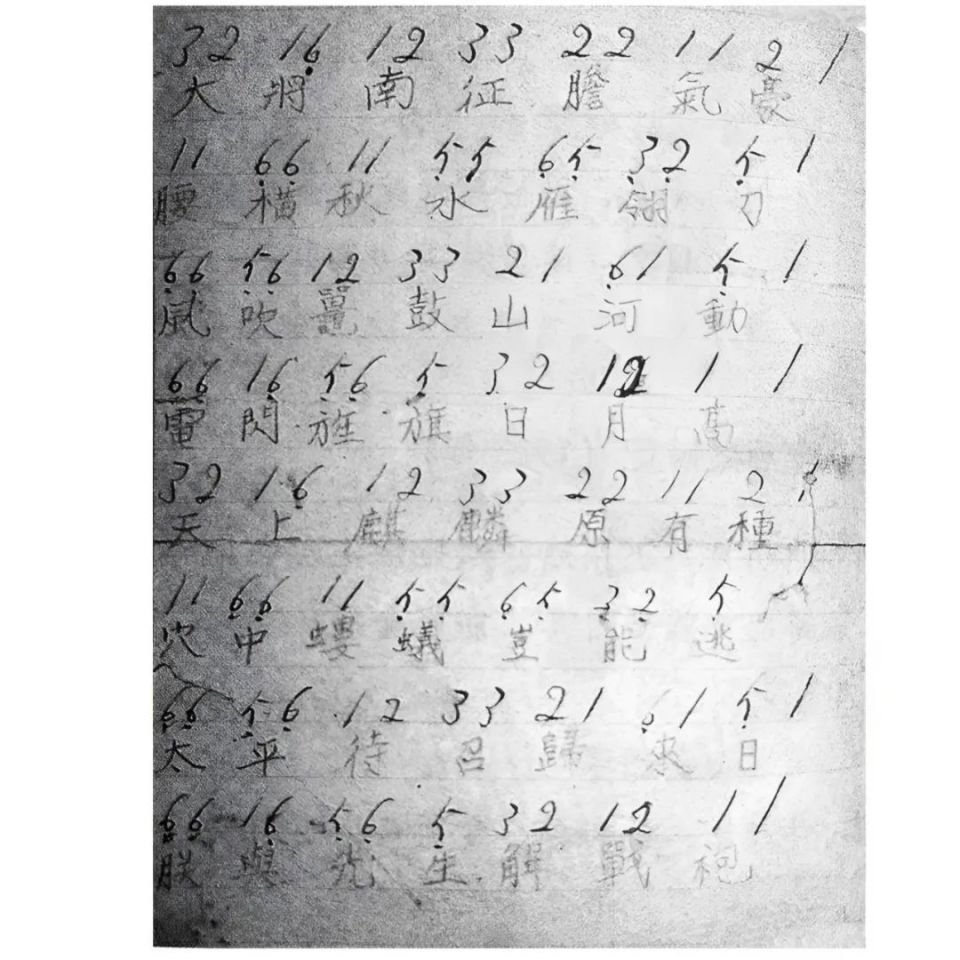 32 16 12 33 22 11 2 1
大 將 南 征 膽 氣 豪
11 66 11 55 65 32 5 1
腰 橫 秋 水 雁 翎 刀
66 56 12 33 21 61 5 1
風 吹 鼉 鼓 山 河 動
66 16 56 5 32 12 1 1
電 閃 旌 旗 日 月 高
32 16 12 33 22 11 2 1
天 上 麒 麟 原 有 種
11 66 11 55 65 32 5
穴 中 螻 蟻 豈 能 逃
66 56 12 33 21 61 5 1
太 平 待 召 歸 來 日
66 16 56 5 32 12 11
朕 與 先 生 解 戰 袍